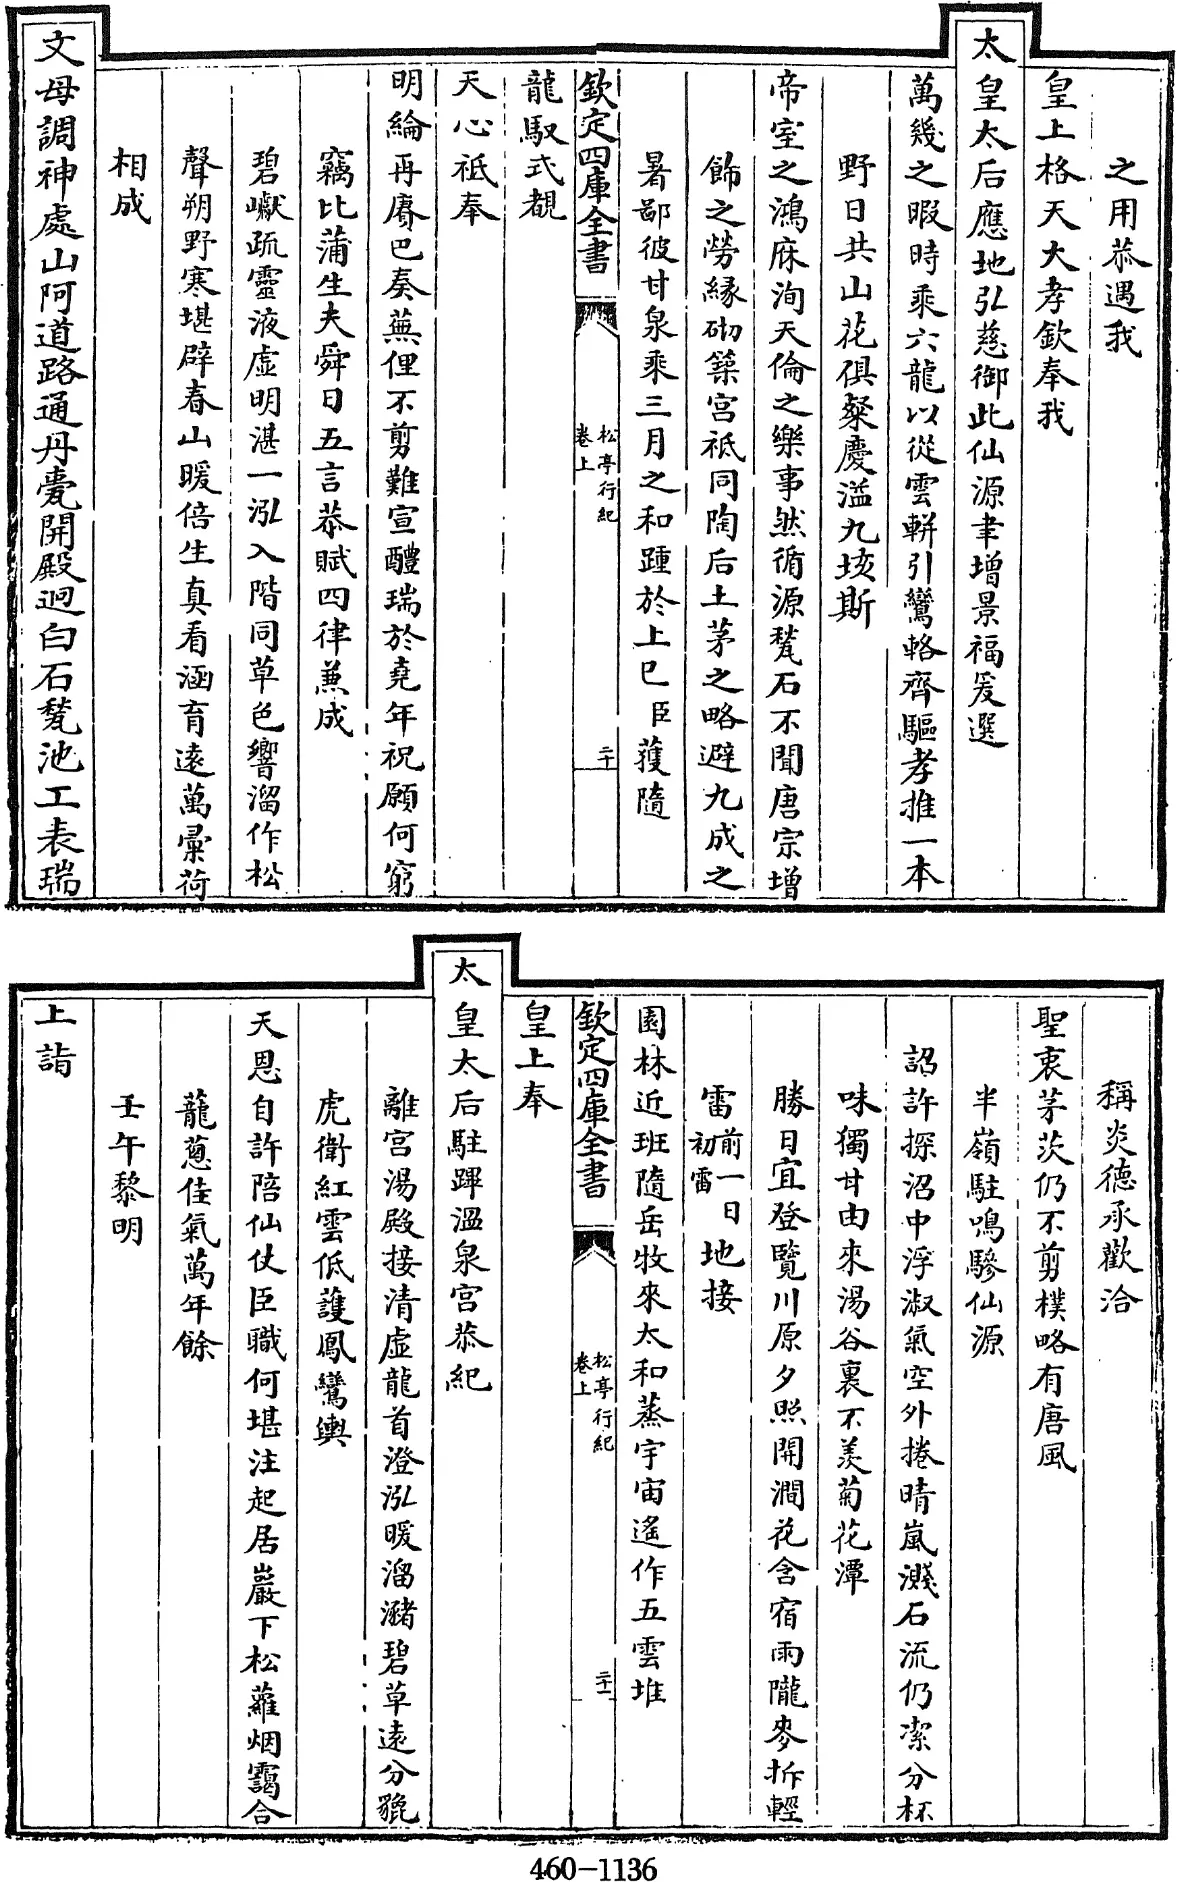 之用恭遇我
皇上格天大孝欽奉我
太皇太后應地弘慈御此仙源聿增景福爰選
萬幾之暇時乘六龍以從雲軿引鸞輅齊驅孝推一本
野日共山花俱粲慶溢九垓斯
帝室之鴻庥洵天倫之樂事然循源甃石不聞唐宗增
飾之勞緣砌築宮祗同陶后土茅之略避九成之
暑鄙彼甘泉乘三月之和踵於上巳臣獲隨
欽定四庫全書
松亭行紀
卷上
二十
龍馭式覩
天心祗奉
明綸再賡巴奏蕪俚不剪難宣醴瑞於堯年祝願何窮
竊比蒲生夫舜日五言恭賦四律兼成
碧巘疏靈液虛明湛一泓入階同草色響溜作松
聲朔野寒堪辟春山暖倍生真看涵育遠萬彙荷
相成
文母調神處山阿道路通丹甍開殿迥白石甃池工表瑞
稱炎德承歡洽
聖衷茅茨仍不剪樸略有唐風
半嶺駐鳴驂仙源
詔許探沼中浮淑氣空外捲晴嵐濺石流仍潔分杯
味獨甘由來湯谷裏不羨菊花潭
勝日宜登覽川原夕照開澗花含宿雨隴麥拆輕
雷前一日初雷地接
園林近班隨岳牧來太和蒸宇宙遙作五雲堆
欽定四庫全書
松亭行紀
卷上
二十一
皇上奉
太皇太后駐蹕溫泉宮恭紀
離宮湯殿接清虛龍首澄泓暖溜瀦碧草遠分貔
虎衛紅雲低護鳳鸞輿
天恩自許陪仙仗臣職何堪注起居巖下松蘿烟靄合
蘢蔥佳氣萬年餘
壬午黎明
上詣
460-1136